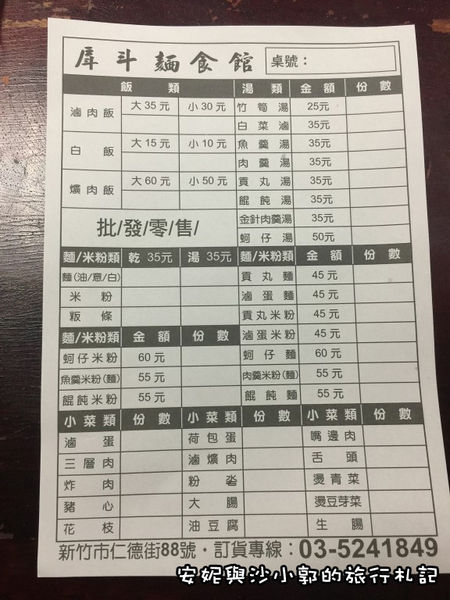 犀斗麵食館 桌號：
飯類 湯類 金額 份數
滷肉飯 大35元 小30元 竹筍湯 25元
白菜滷 35元
白飯 大15元 小10元 魚羹湯 35元
肉羹湯 35元
爌肉飯 大60元 小50元 貢丸湯 35元
餛飩湯 35元
批/發/零/售/ 金針肉羹湯 35元
蚵仔湯 50元
麵/米粉類 乾35元 湯35元 麵/米粉類 金額 份數
麵(油/意/白) 貢丸麵 45元
米粉 滷蛋麵 45元
粄條 貢丸米粉 45元
麵/米粉類 金額 份數 滷蛋米粉 45元
蚵仔米粉 60元 蚵仔麵 60元
魚羹米粉(麵) 55元 肉羹米粉(麵) 55元
餛飩米粉 55元 餛飩麵 55元
小菜類 份數 小菜類 份數 小菜類 份數
滷蛋 荷包蛋 嘴邊肉
三層肉 滷爌肉 舌頭
炸肉 粉肝 燙青菜
豬心 大腸 燙豆芽菜
花枝 油豆腐 生腸
新竹市仁德街88號・訂貨專線：03-5241849
安妮與沙小郭的旅行札記